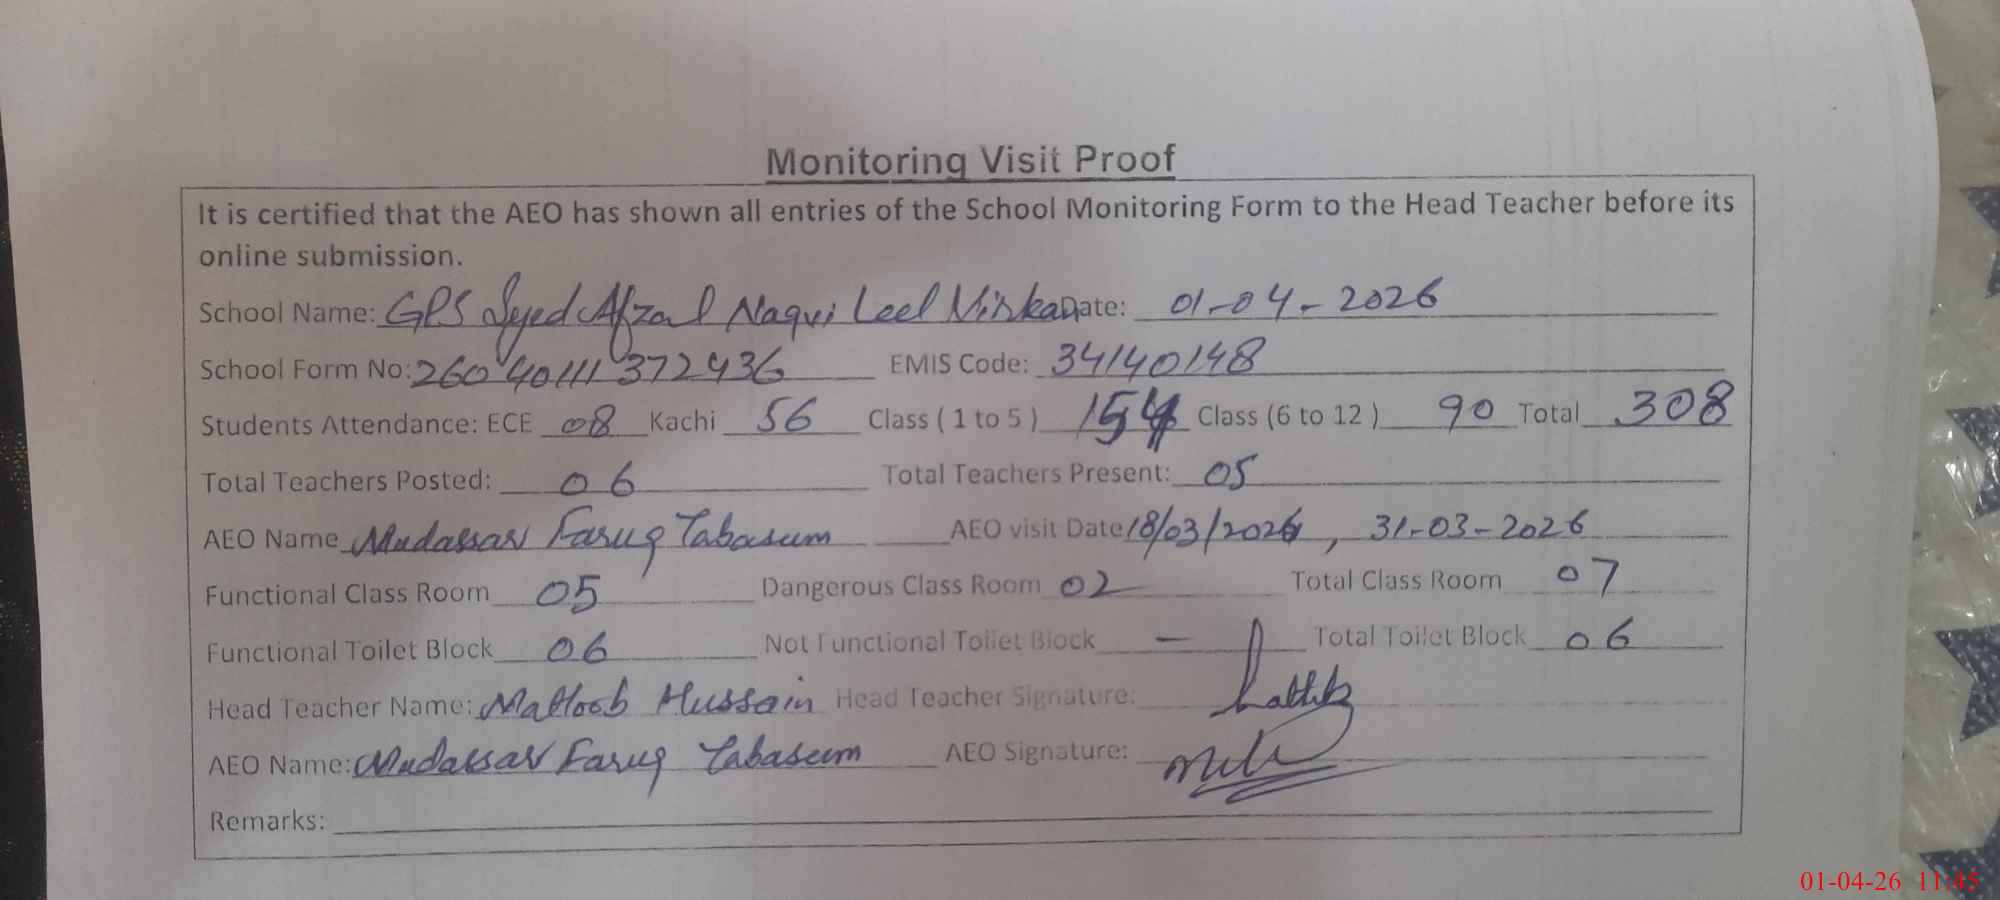 Monitoring Visit Proof
It is certified that the AEO has shown all entries of the School Monitoring Form to the Head Teacher before its
online submission.
School Name: GPS Syed Afzal Naqvi Leel Virka Date: 01-04-2026
School Form No: 26040111372436 EMIS Code: 34140148
Students Attendance: ECE 08 Kachi 56 Class ( 1 to 5 ) 154 Class (6 to 12 ) 90 Total 308
Total Teachers Posted: 06 Total Teachers Present: 05
AEO Name Mudassar Faruq Tabasum AEO visit Date 18/03/2026 , 31-03-2026
Functional Class Room 05 Dangerous Class Room 02 Total Class Room 07
Functional Toilet Block 06 Not Functional Toilet Block - Total Toilet Block 06
Head Teacher Name: Matloob Hussain Head Teacher Signature:
AEO Name: Mudassar Faruq Tabasum AEO Signature:
Remarks:
01-04-26 11:45